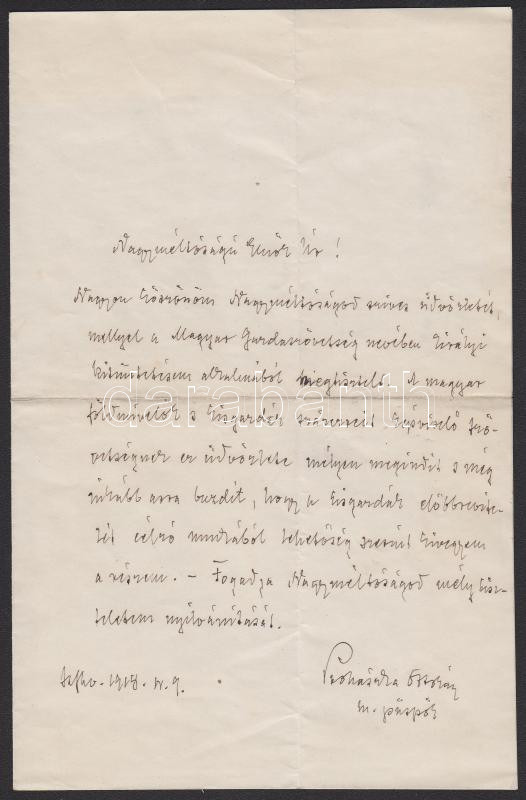 Nagyméltóságú Elnök Úr!
Nagyon köszönöm Nagyméltóságod szives üdvözletét,
mellyel a Magyar Gazdaszövetség nevében királyi
kitüntetésem alkalmából megtisztelt. A magyar
földmívelők s kisgazdák ezreit képviselő szö-
vetségnek ez üdvözlete mélyen megindít s még
inkább arra buzdít, hogy a kisgazdák előbbrevite-
lét célzó munkából lehetőség szerint kivegyem
a részem. – Fogadja Nagyméltóságod mély tisz-
teletem nyilvánítását.
Szfhv. 1918. IV. 9.
Prohászka Ottokár
m. püspök
darabanth